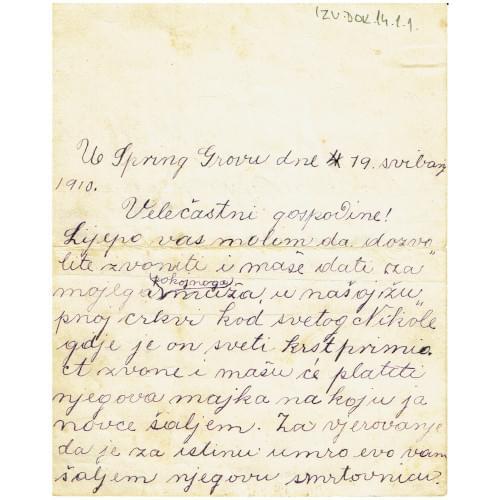 IZV. DOK. 14.1.1.
U Spring Grovu dne 19. svibanj
1910.
Velečastni gospodine!
Lijepo vas molim da dozvo„
lite zvoniti i maše dati za
mojega pokojnoga muža, u našoj žu„
pnoj crkvi kod svetog Nikole
gdje je on sveti krst primio.
A zvone i mašu će platiti
njegova majka na koju ja
novce šaljem. Za vjerovanje
da je za istinu umro evo vam
šaljem njegovu smrtovnicu.